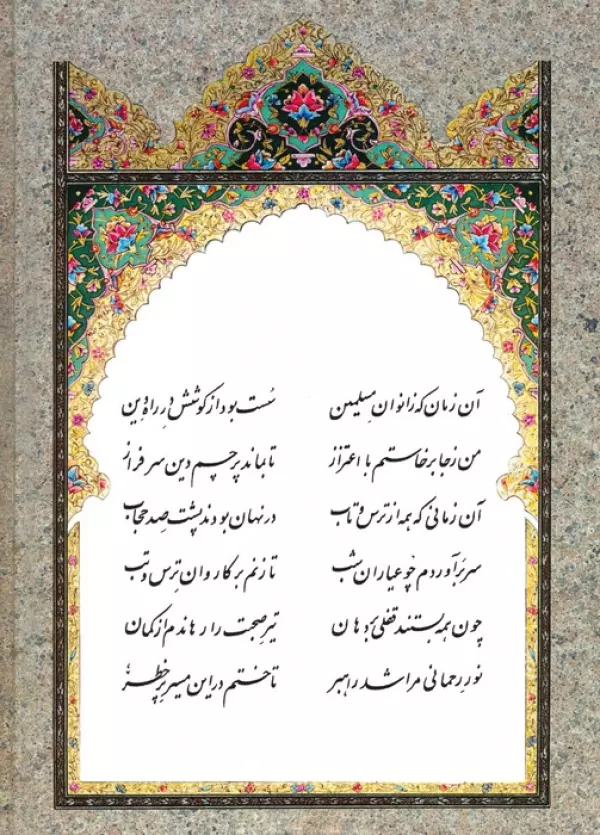 آن زمان که زانوان مسلمین سست بود از کوشش در راه دین
من ز جا برخاستم با اهتزاز تا بماند پرچم دین سرفراز
آن زمانی که همه از ترس و تاب در نهان بودند پشت صد حجاب
سر برآوردم چو عیاران شب تا زنم بر کاروان ترس و تب
چون همه بستند قفلی بر دهان تیر صحبت را رهاندم از کمان
نور رحمانی مرا شد راهبر تاختم در این مسیر پر خطر؛